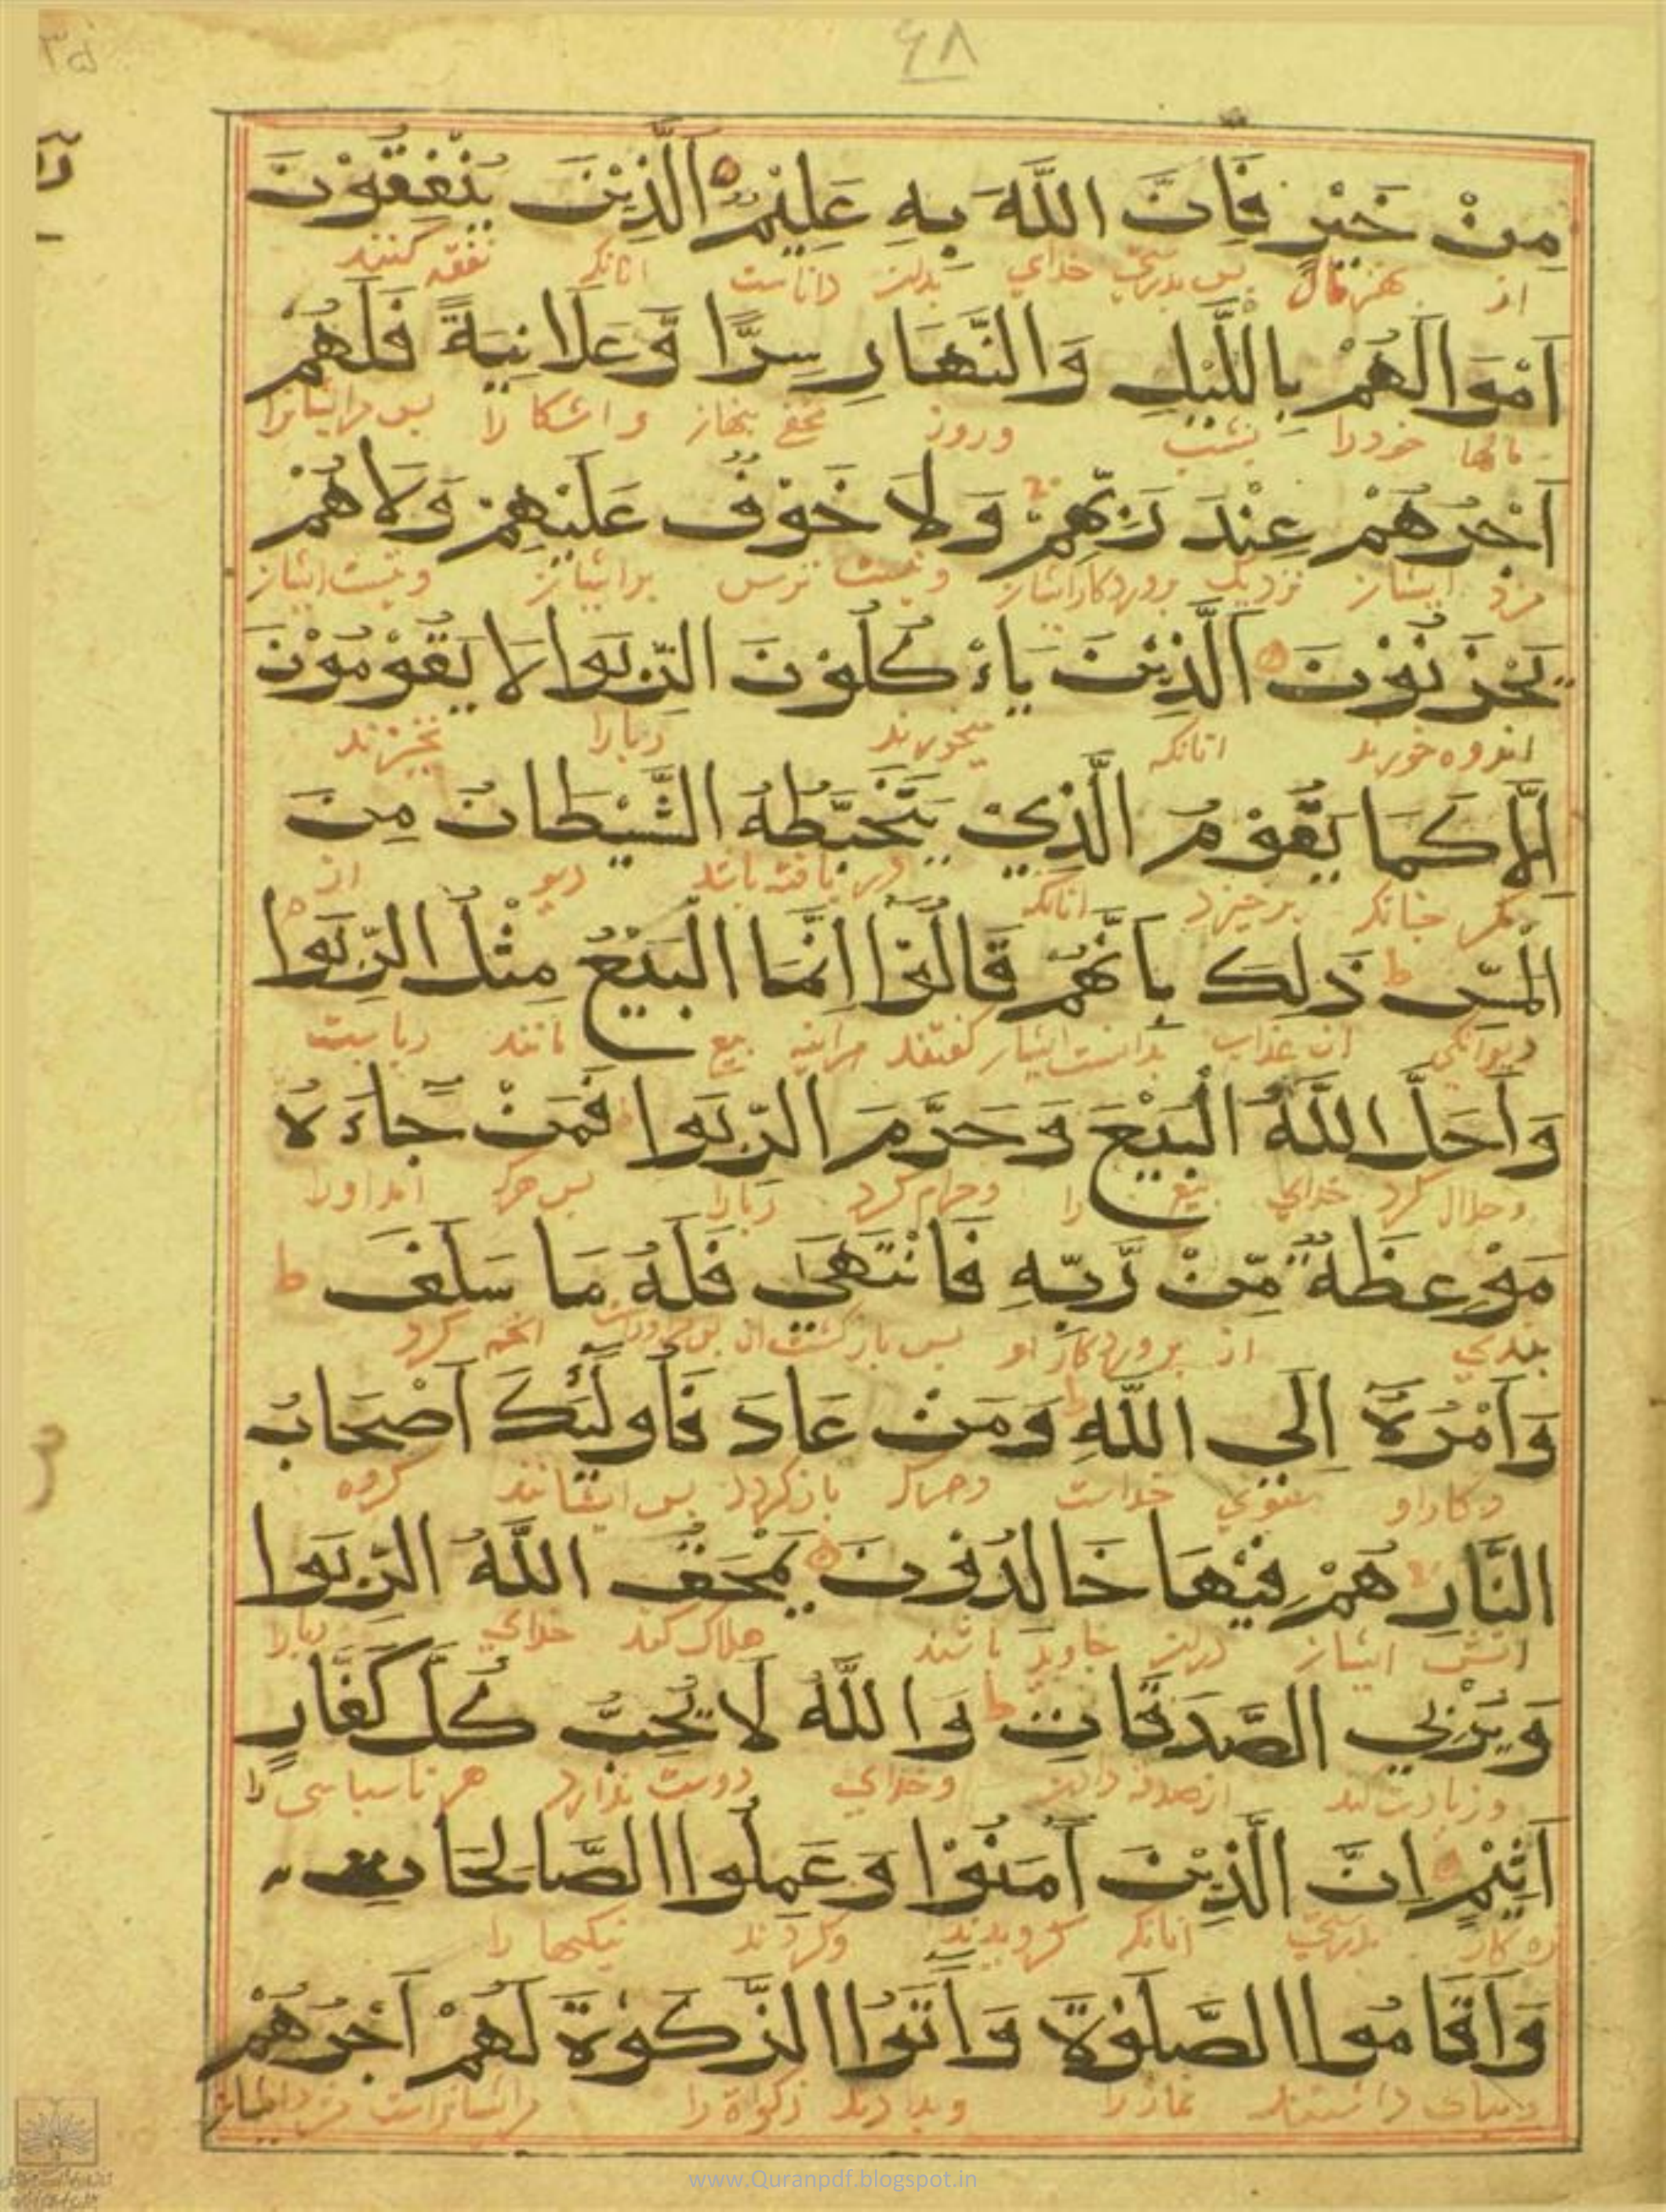 ۶۸
۳۵
مِنْ خَيْرٍ فَاِنَّ اللّٰهَ بِهِ عَلِيْمٌ اَلَّذِيْنَ يُنْفِقُوْنَ
از بهر مال پس بدرستی خدای بدان داناست انانکه نفقه کنند
اَمْوَالَهُمْ بِاللَّيْلِ وَالنَّهَارِ سِرًّا وَّعَلَانِيَةً فَلَهُمْ
مالها خود را بشب وروز واشکارا پس مرایشانرا
اَجْرُهُمْ عِنْدَ رَبِّهِمْ وَلَا خَوْفٌ عَلَيْهِمْ وَلَاهُمْ
مزد ایشان نزدیک پروردکار ایشان ونیست ترس برایشان ونیست ایشان
يَحْزَنُوْنَ اَلَّذِيْنَ يَاءْكُلُوْنَ الرِّبٰوا لَا يَقُوْمُوْنَ
اندوه خورند انانکه میخورند ربا را نخیزند
اِلَّا كَمَا يَقُوْمُ الَّذِيْ يَتَخَبَّطُهُ الشَّيْطَانُ مِنَ
مکر چنانکه برخیزد انانکه دریافته باشد دیو از
الْمَسِّ ط ذٰلِكَ بِاَنَّهُمْ قَالُوْا اِنَّمَا الْبَيْعُ مِثْلُ الرِّبٰوا
دیوانکی ان عذاب ایشان کفتند هراینه بیع مانند ربا
وَاَحَلَّ اللّٰهُ الْبَيْعَ وَحَرَّمَ الرِّبٰوا فَمَنْ جَاءَهُ
وحلال کرد خدای بیع را وحرام کرد ربا را پس هرکه امد اورا
مَوْعِظَةٌ مِّنْ رَّبِّهِ فَانْتَهَى فَلَهُ مَا سَلَفَ ط
پندی از پروردکار او پس باز کشت انچه کرد
وَاَمْرُهُ اِلَي اللّٰهِ وَمَنْ عَادَ فَاُولٰئِكَ اَصْحَابُ
وکار او بسوی خداست وهرکه باز کردد پس ایشانند کروه
النَّارِ هُمْ فِيْهَا خَالِدُوْنَ يَمْحَقُ اللّٰهُ الرِّبٰوا
اتش ایشان دران جاوید باشند هلاک کند خدای ربا را
وَيُرْبِي الصَّدَقَاتِ ط وَاللّٰهُ لَا يُحِبُّ كُلَّ كَفَّارٍ
وزیادت کند وخدای دوست ندارد هر ناسپاسی را
اَثِيْمٍ اِنَّ الَّذِيْنَ اٰمَنُوْا وَعَمِلُوا الصَّالِحَاتِ
بدرستی انانکه کرویدند وکردند نیکیها را
وَاَقَامُوا الصَّلٰوةَ وَاٰتَوُا الزَّكٰوةَ لَهُمْ اَجْرُهُمْ
داشتند نماز را وبدادند زکواة را
www.Quranpdf.blogspot.in